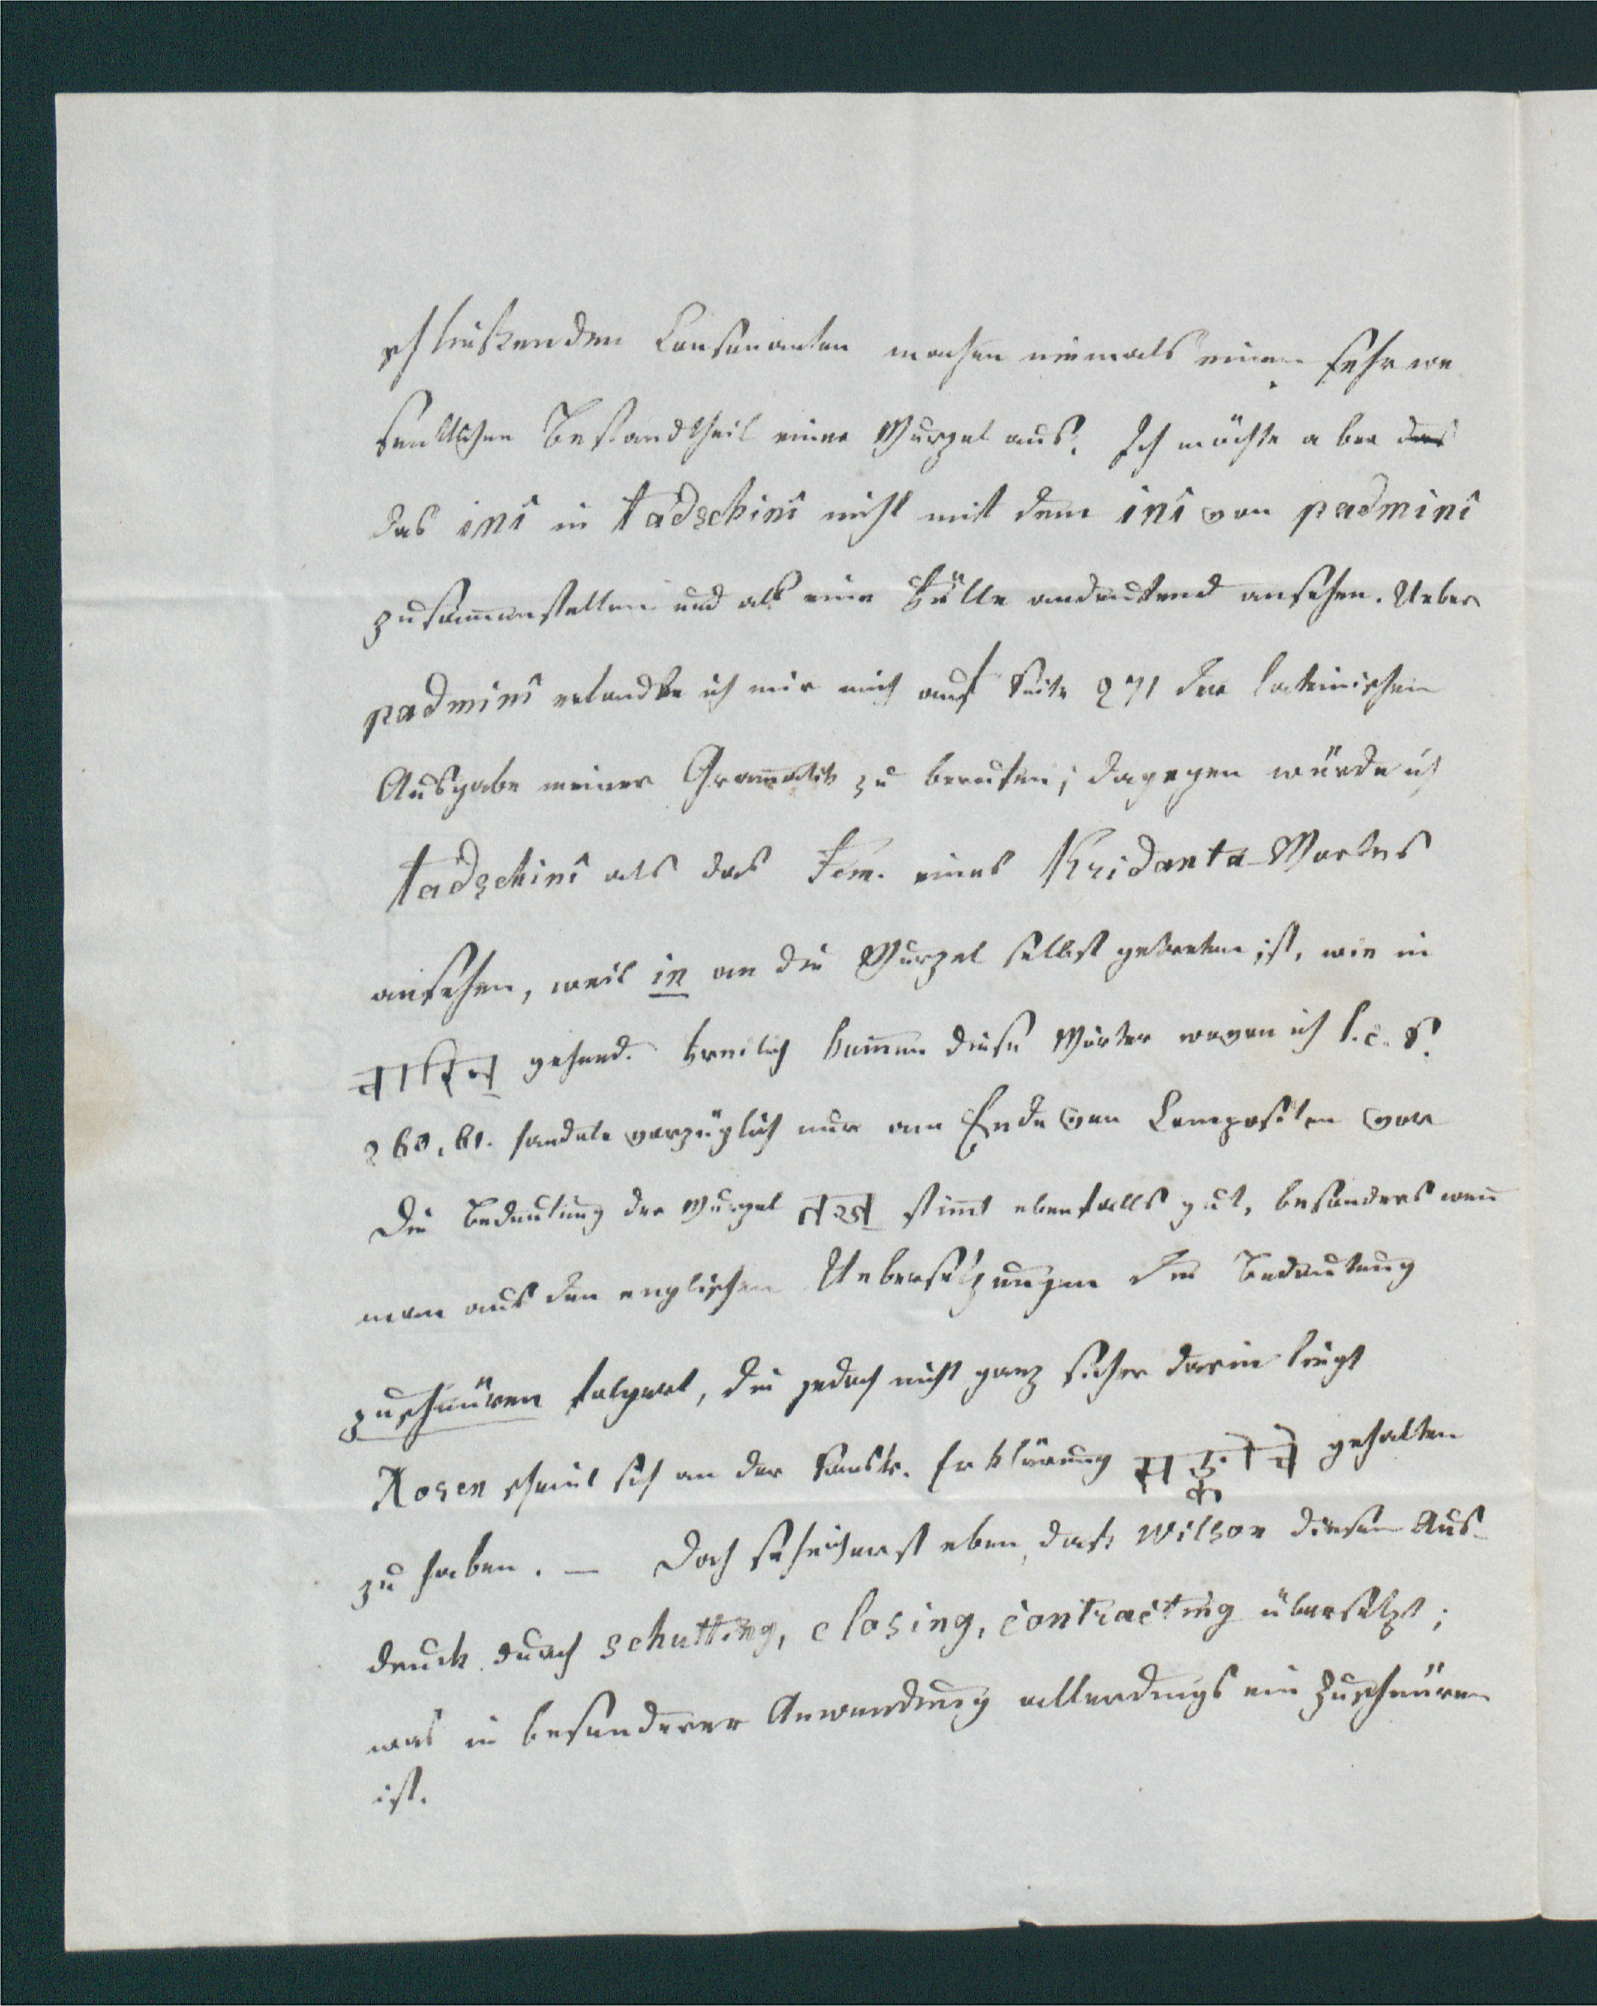 schließenden Consonanten machen niemals einen sehr we
sentlichen Bestandtheil einer Wurzel aus. Ich möchte aber das
das inî in tâdschinî nicht mit dem inî von padminî
zusam̄enstellen und als eine Fülle andeutend ansehen. Ueber
padminî erlaubte ich mir mich auf Seite 271 der lateinischen
Ausgabe meiner Gram̄atik zu berufen; dagegen würde ich
tâdschinî als das Fem. eines Kridanta-Wortes
ansehen, weil in an die Wurzel selbst getreten ist, wie in
gehend. Freilich kom̄en diese Wörter wovon ich l.c. S.
260, 61. handele vorzüglich nur am Ende von Compositen vor
Die Bedeutung der Wurzel तञ्च् stim̄t ebenfalls gut, besonders wen̄
man aus den englischen Uebersetzungen die Bedeutung
zuschnüren folgert, die jedoch nicht ganz sicher darin liegt
Rosen scheint sich an der Sanskr. Erklärung सङ्कोचे gehalten
zu haben. — Doch sehe ich erst eben, daß Wilson diesen Aus-
druck durch schutting, closing, contracting übersetzt;
was in besonderer Anwendung allerdings ein Zuschnüren
ist.